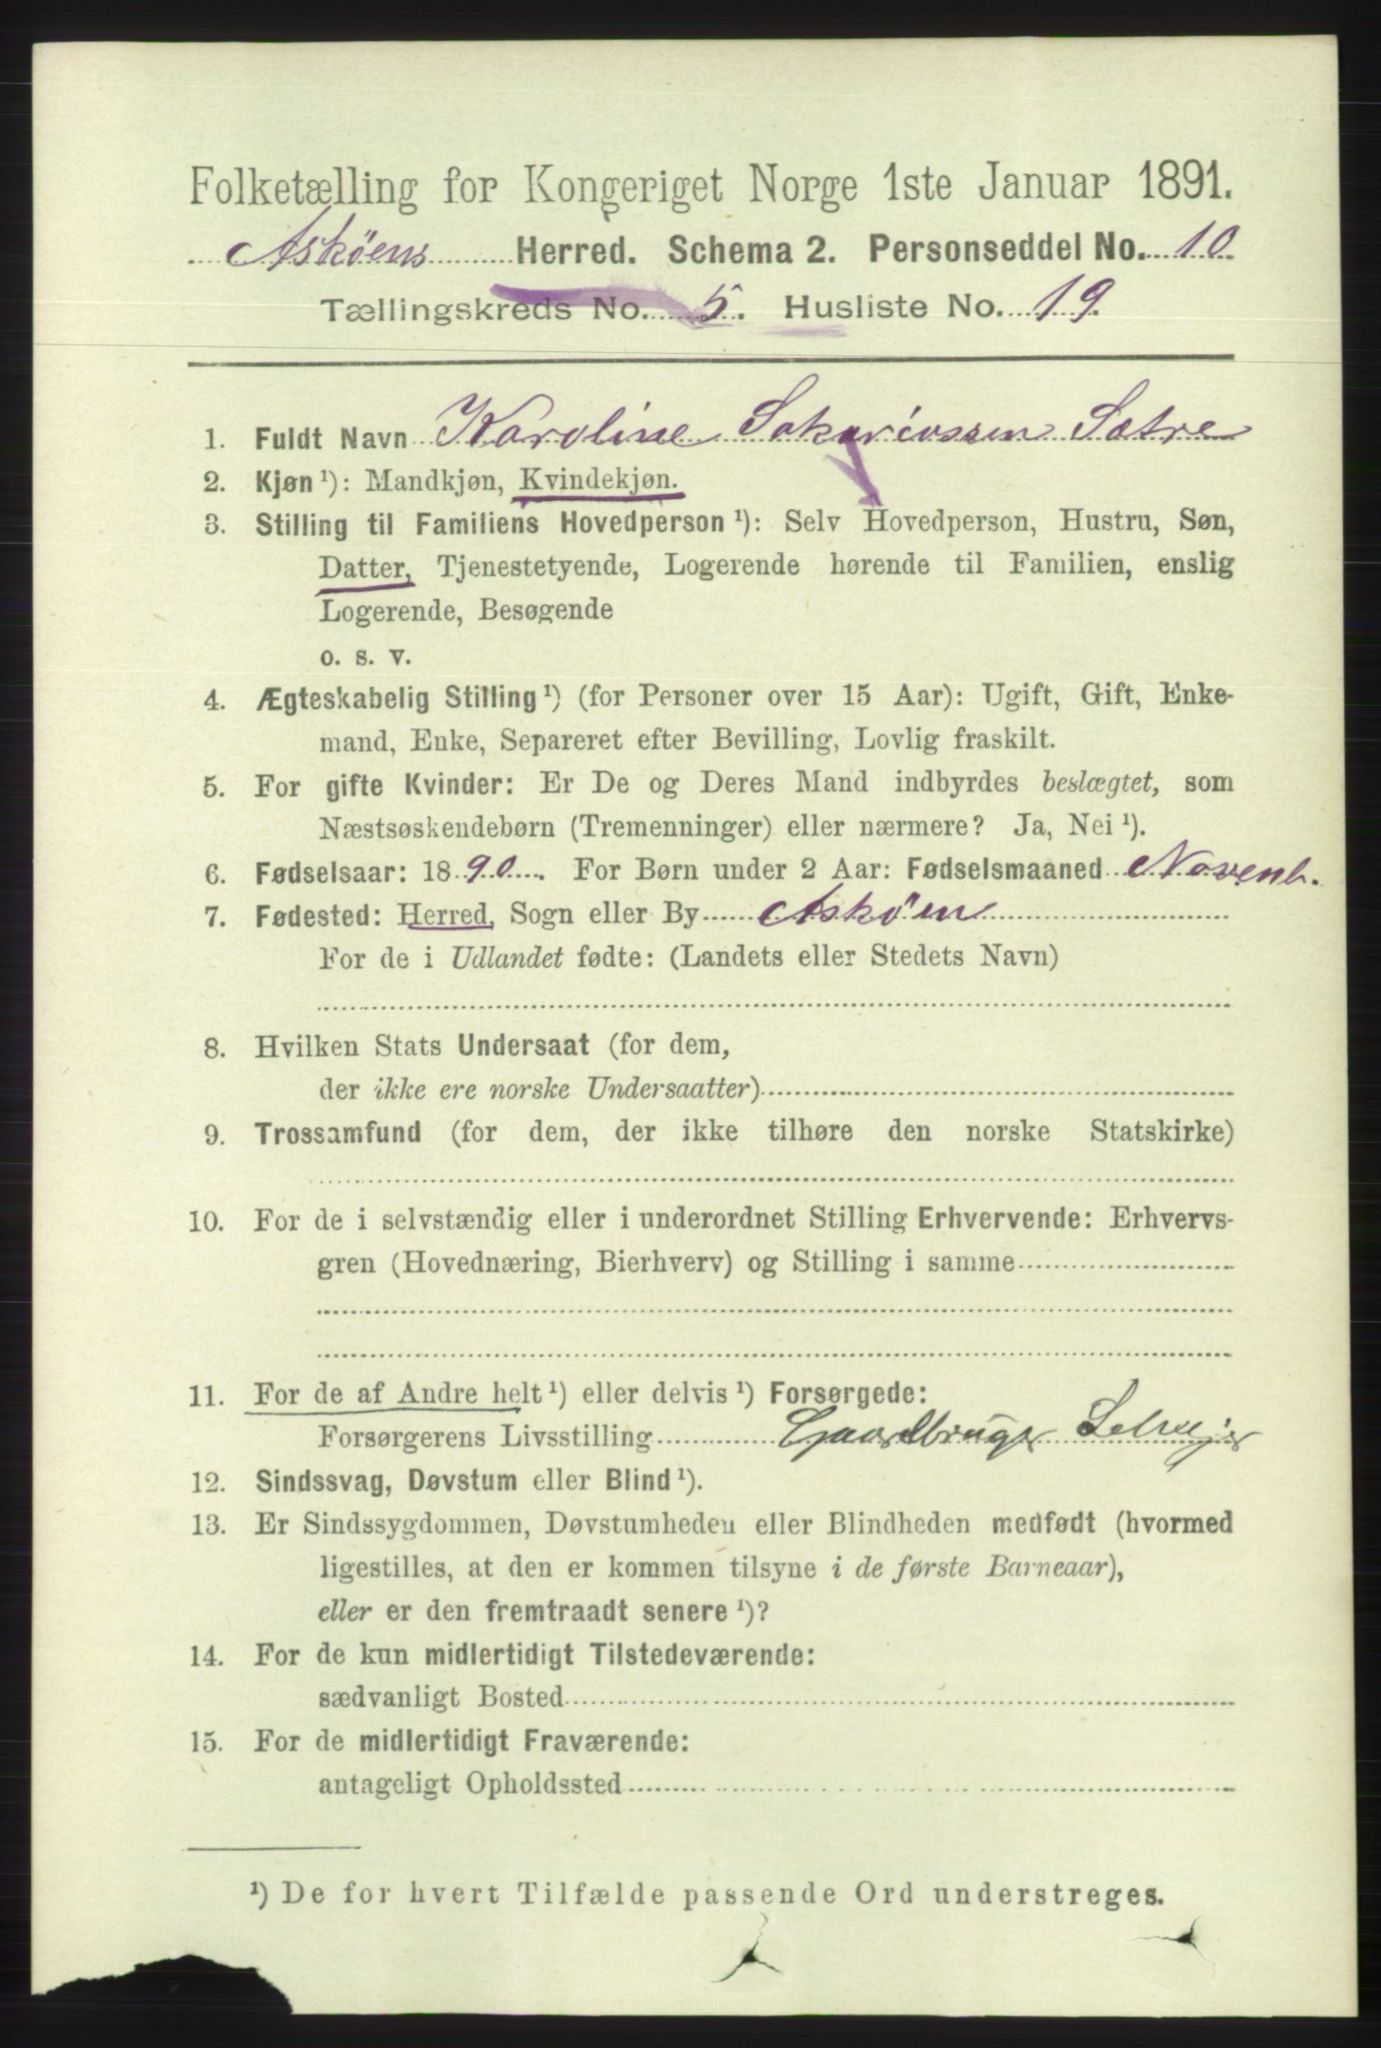 Folketælling for Kongeriget Norge 1ste Januar 1891.
Askøens Herred. Schema 2. Personseddel No. 10
Tællingskreds No. 5. Husliste No. 19.
1. Fuldt Navn Karoline Sakariassen Sætre
2. Kjøn ¹): Mandkjøn, Kvindekjøn.
3. Stilling til Familiens Hovedperson ¹): Selv Hovedperson, Hustru, Søn,
Datter, Tjenestetyende, Logerende hørende til Familien, enslig
Logerende, Besøgende
o. s. v.
4. Ægteskabelig Stilling ¹) (for Personer over 15 Aar): Ugift, Gift, Enke-
mand, Enke, Separeret efter Bevilling, Lovlig fraskilt.
5. For gifte Kvinder: Er De og Deres Mand indbyrdes beslægtet, som
Næstsøskendebørn (Tremenninger) eller nærmere? Ja, Nei ¹).
6. Fødselsaar: 1890. For Børn under 2 Aar: Fødselsmaaned Novenb.
7. Fødested: Herred, Sogn eller By Askøen
For de i Udlandet fødte: (Landets eller Stedets Navn)
8. Hvilken Stats Undersaat (for dem,
der ikke ere norske Undersaatter)
9. Trossamfund (for dem, der ikke tilhøre den norske Statskirke)
10. For de i selvstændig eller i underordnet Stilling Erhvervende: Erhvervs-
gren (Hovednæring, Bierhverv) og Stilling i samme
11. For de af Andre helt ¹) eller delvis ¹) Forsørgede:
Forsørgerens Livsstilling Gaardbruger Selvejer
12. Sindssvag, Døvstum eller Blind ¹).
13. Er Sindssygdommen, Døvstumheden eller Blindheden medfødt (hvormed
ligestilles, at den er kommen tilsyne i de første Barneaar),
eller er den fremtraadt senere ¹)?
14. For de kun midlertidigt Tilstedeværende:
sædvanligt Bosted
15. For de midlertidigt Fraværende:
antageligt Opholdssted
¹) De for hvert Tilfælde passende Ord understreges.